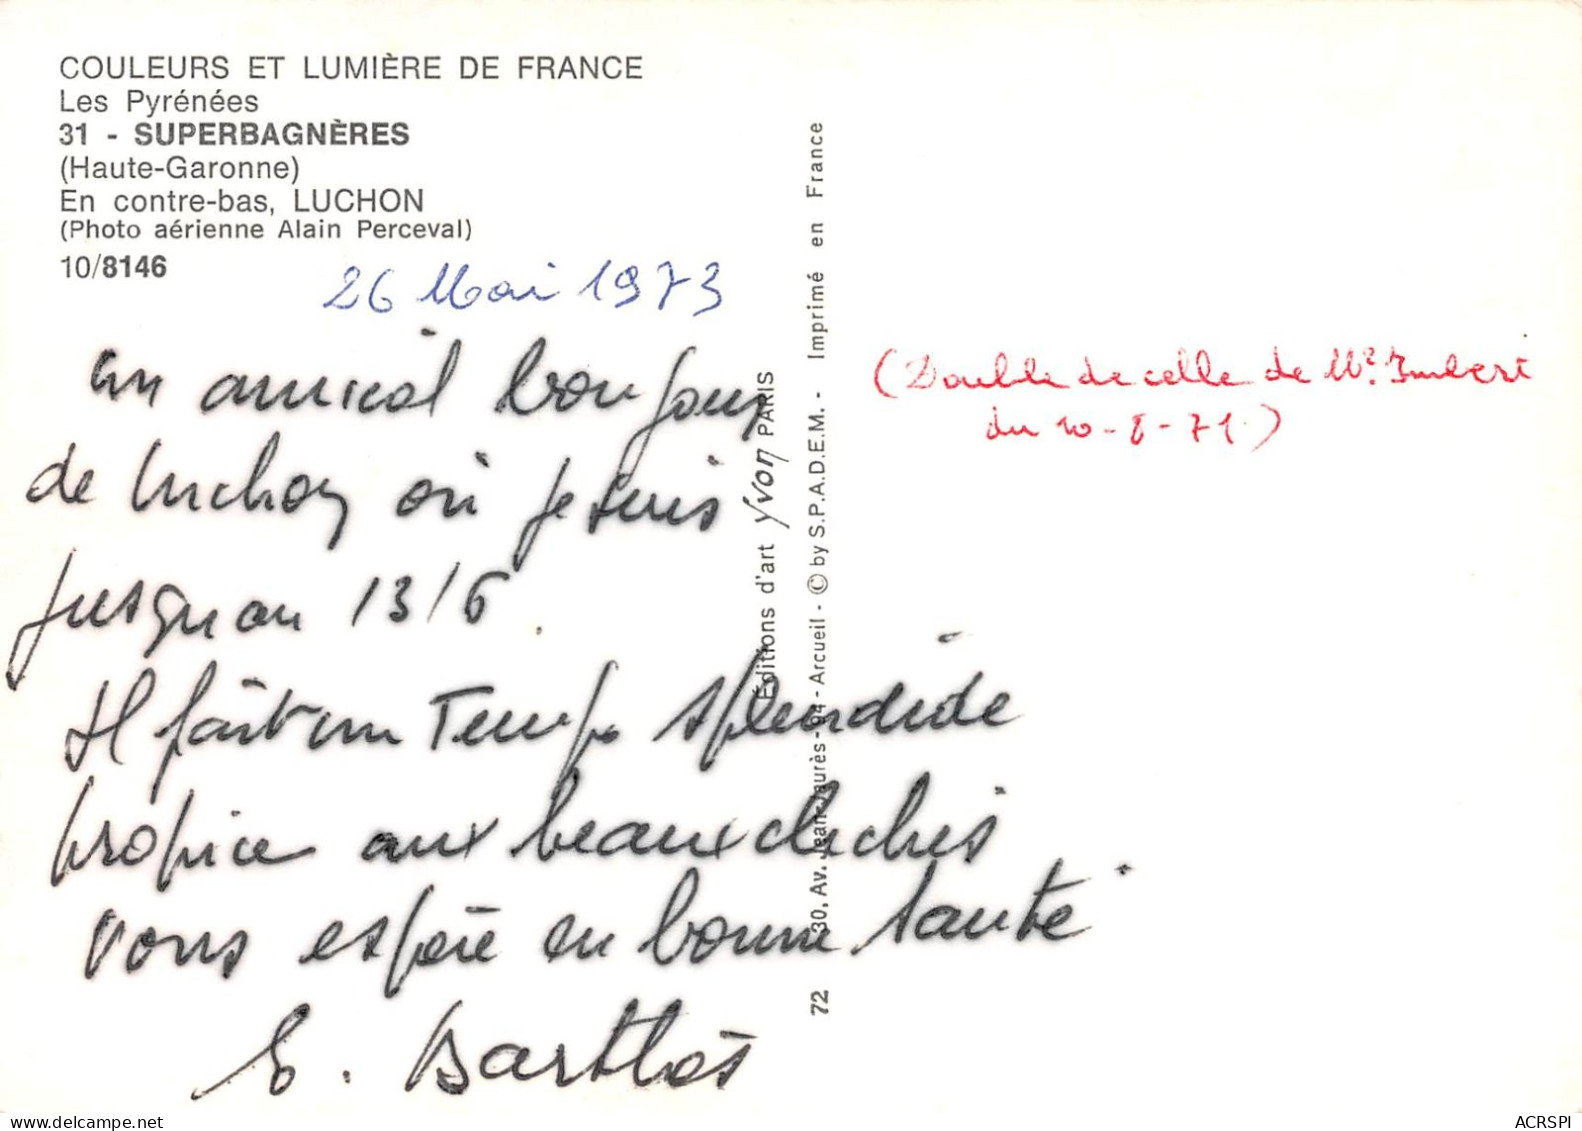 COULEURS ET LUMIÈRE DE FRANCE
Les Pyrénées
31 - SUPERBAGNÈRES
(Haute-Garonne)
En contre-bas, LUCHON
(Photo aérienne Alain Perceval)
10/8146
26 Mai 1973
un amical bonjour
de Luchon où je suis
jusqu'au 13/6.
Il fait un temps splendide
propice aux beaux clichés
vous espère en bonne santé.
E. Barthès
Éditions d'art yvon PARIS
72 30, Av. Jean-Jaurès - 94 - Arcueil - © by S.P.A.D.E.M. - Imprimé en France
(Double de celle de Mr. Imbert
du 10-8-71)
ACRSPI